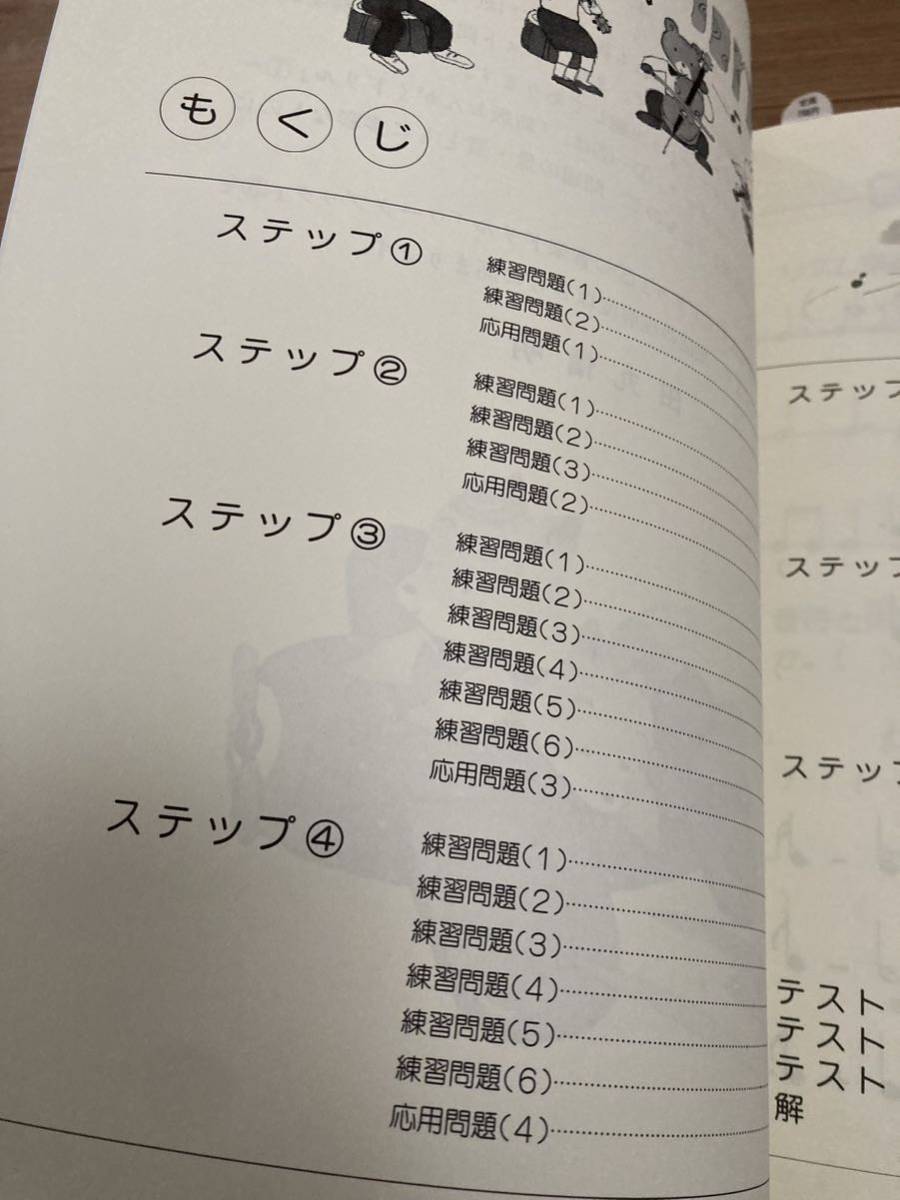 もくじ
ステップ①
練習問題(1)
練習問題(2)
応用問題(1)
ステップ②
練習問題(1)
練習問題(2)
練習問題(3)
応用問題(2)
ステップ③
練習問題(1)
練習問題(2)
練習問題(3)
練習問題(4)
練習問題(5)
練習問題(6)
応用問題(3)
ステップ④
練習問題(1)
練習問題(2)
練習問題(3)
練習問題(4)
練習問題(5)
練習問題(6)
応用問題(4)
ステップ
ステップ
ステップ
テスト
テスト
テスト
解